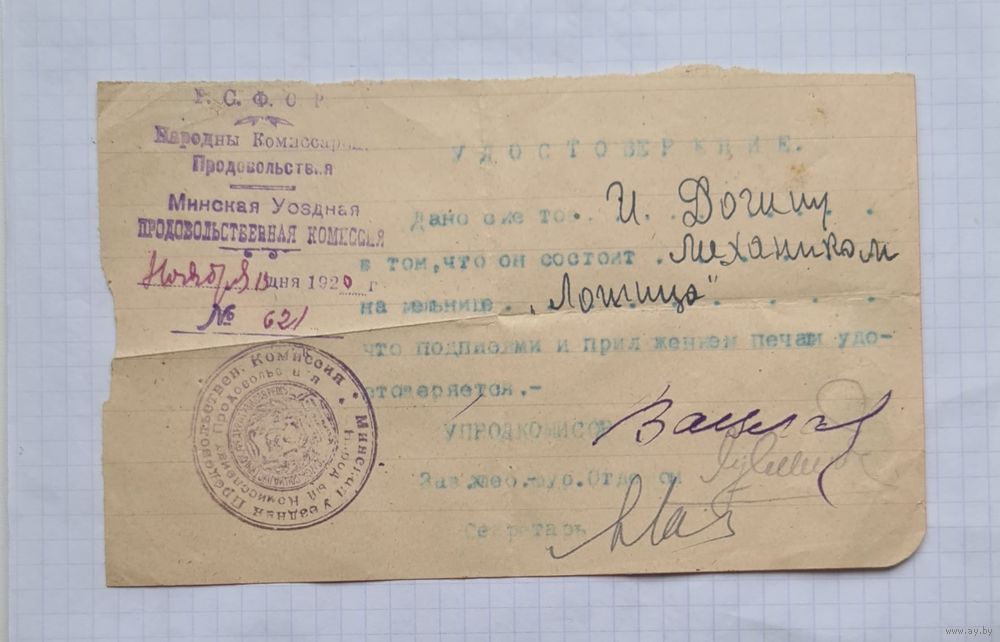 Р. С. Ф. С Р
Народны Комиссариа
Продовольствия
Минская Уездная
ПРОДОВОЛЬСТВЕННАЯ КОМИССИЯ
Ноября 13 дня 1920 г
№ 621
УДОСТОВЕРЕНИЕ.
Дано сие тов. И. Догину
в том, что он состоит . Механиком
на мельнице . "Лошица"
что подписями и прил жением печати удо-
стоверяется.-
УПРОДКОМИССАР
Зав.хлеб.-фур.Отде
Секретарь
Минская Уездная Продовольствен. Комиссия
www.ay.by